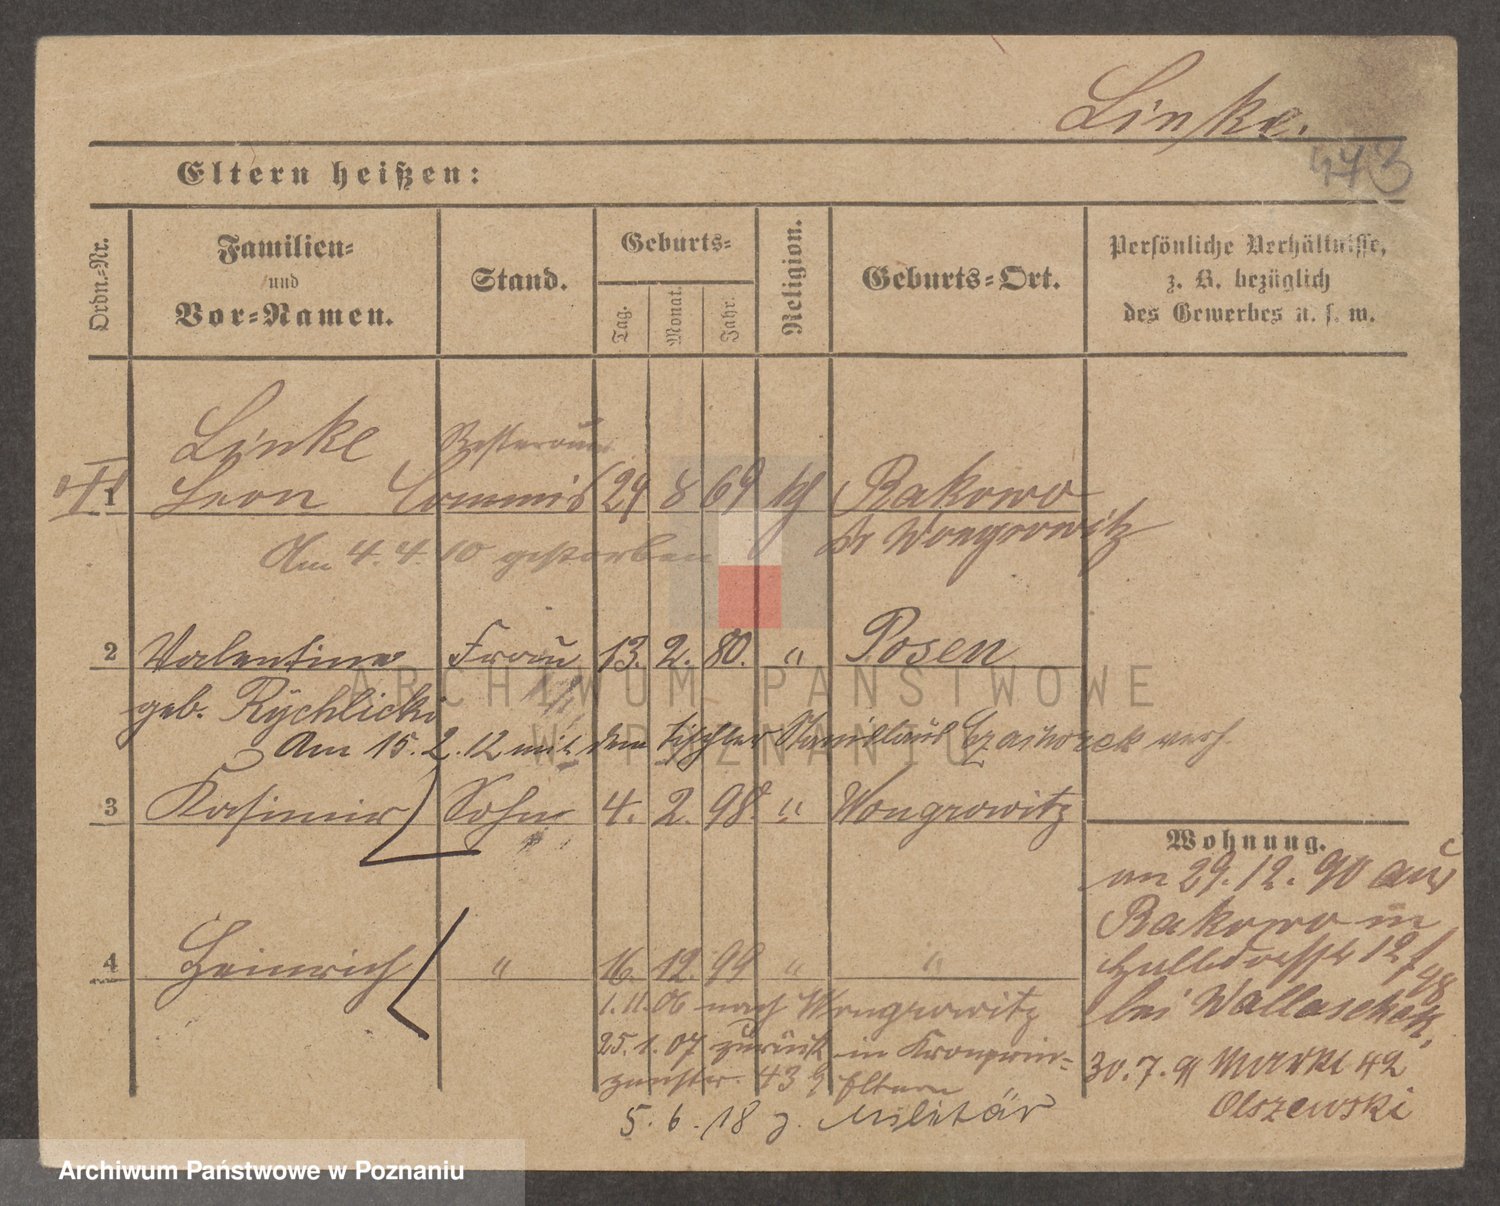 Linke.
473
Eltern heißen:
Ordn.-Nr.
Familien-
und
Vor-Namen.
Stand.
Geburts-
Tag.
Monat.
Jahr.
Religion.
Geburts-Ort.
Persönliche Verhältnisse,
z. B. bezüglich
des Gewerbes u. s. w.
Linke
1 Leon Commis 29 8 69 Bakowo
Kr Wongrowitz
Am 4.4.10 gestorben
2 Valentine Frau 13. 2. 80. " Posen
geb. Rychlicki
Am 15.2.12 mit dem Tischler Stanislaus verh.
3 Kasimir Sohn 4. 2. 98. " Wongrowitz
4 Heinrich " 16. 12. 99 " "
1.11.06 nach Wongrowitz
25.1.07 zurück in Kronprin-
zenstr. 43 Eltern
5.6.18 z. Militär
Wohnung.
am 29.12.90 aus
Bakowo in
12/
98
bei Wallaschek,
30.7.91 Markt 42
Olszewski
ARCHIWUM PAŃSTWOWE
W POZNANIU
Archiwum Państwowe w Poznaniu